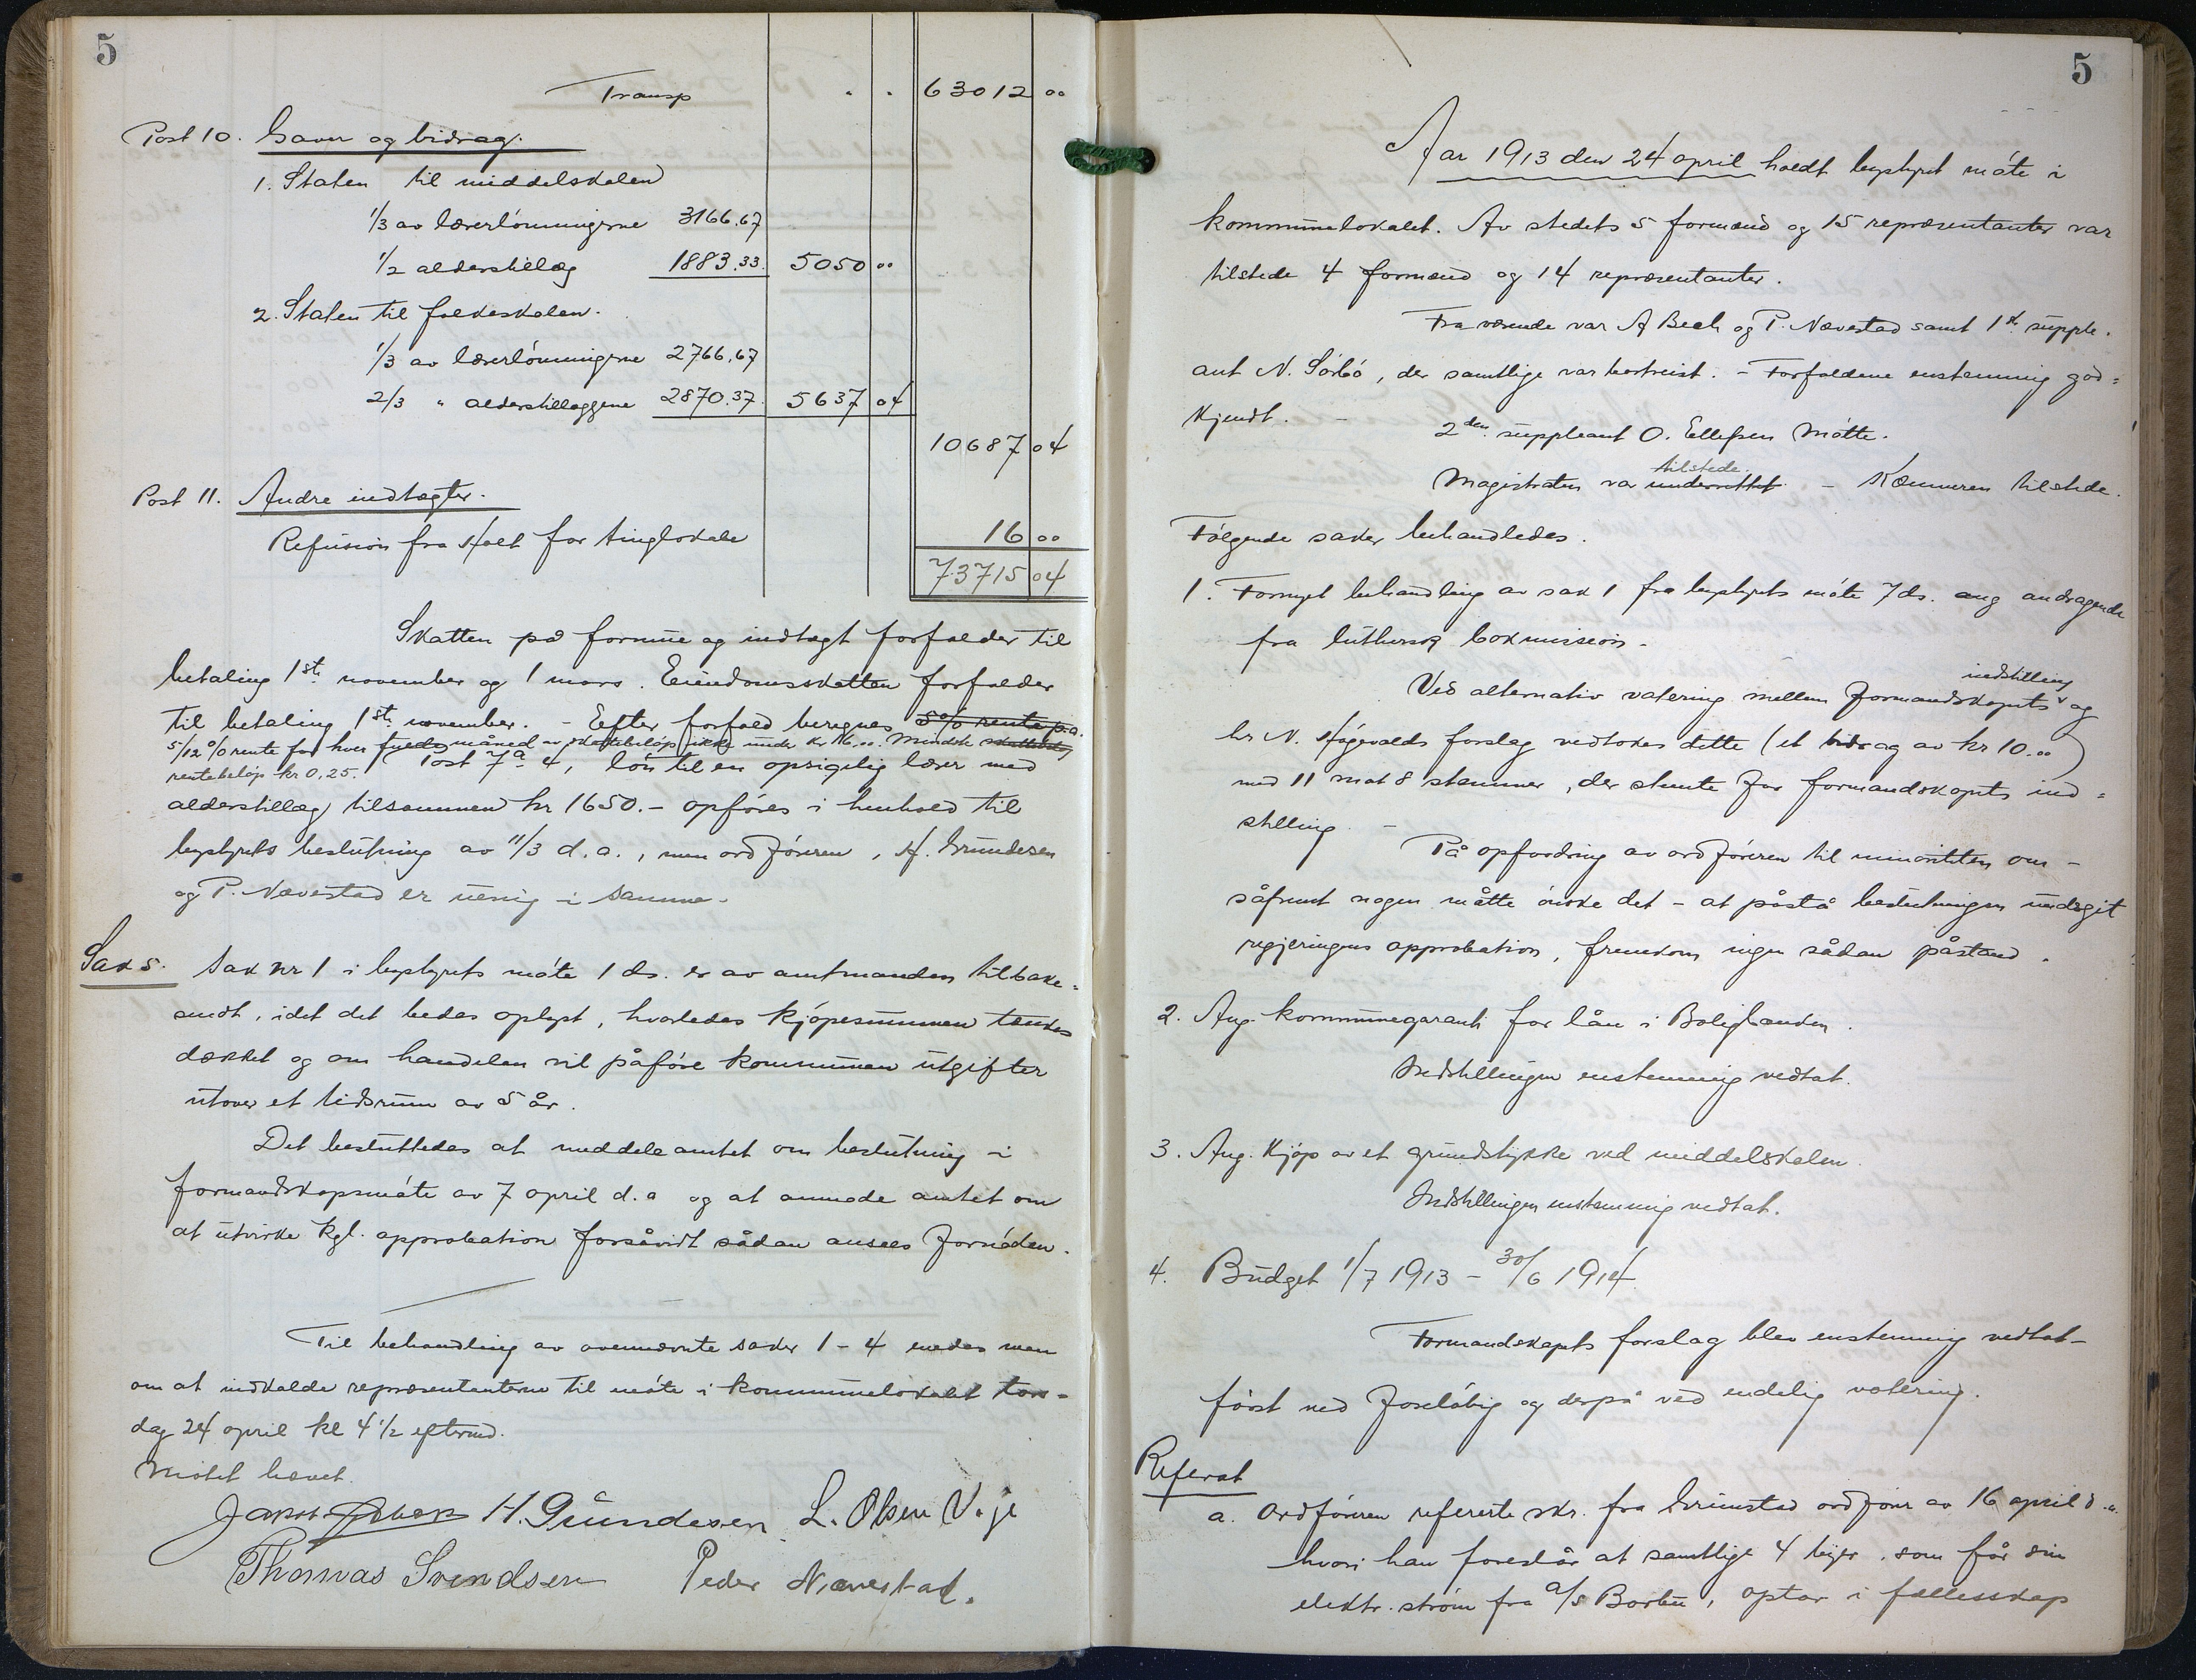 5
Transp " " 63012 00
Post 10. Gaver og bidrag.
1. Staten til middelskolen
1/3 av lærerlönningerne 3166.67
1/2 alderstillæg 1883.33 5050 00
2. Staten til folkeskolen.
1/3 av lærerlönningerne 2766.67
2/3 " alderstillæggene 2870.37 5637 04
10687 04
Post 11. Andre indtægter.
Refusion fra Holt for tinglokale 16 00
73715 04
Skatten på formue og indtægt forfalder til
betaling 1ste november og 1 mars. Eiendomsskatten forfalder
til betaling 1ste november. - Efter forfald beregnes 5% rente p.a.
5/12 % rente for hver måned av skattebelöp ikke under kr 16.00. Mindste skattebelöp
rentebelöp kr 0,25.
Post 7a 4, lön til en opsigelig lærer med
alderstillæg tilsammen kr 1650.- opföres i henhold til
bystyrets beslutning av 11/3 d.a., men ordföreren, H. Gründesen
og P. Nævestad er uenig i samme.
Sak 5. Sak nr 1 i bystyrets möte 1 ds. er av amtmanden tilbake=
sendt, idet det bedes oplyst, hvorledes kjöpesummen tænkes
dækket og om handelen vil påföre kommunen utgifter
utover et tidsrum av 5 år.
Det besluttedes at meddele amtet om beslutning i
formandskapsmöte av 7 april d.a og at anmode amtet om
at utvirke kgl. approbation forsåvidt sådan ansees fornöden.
Til behandling av ovennævnte saker 1 - 4 enedes man
om at indkalde repræsentanterne til möte i kommunelokalet tors-
dag 24 april kl 4 1/2 eftermd.
Mötet hævet.
H. Gründesen L. Olsen Veje
Thomas Svendsen Peder Nævestad.
5
Aar 1913 den 24 april holdt bystyret möte i
kommunelokalet. Av stedets 5 formænd og 15 repræsentanter var
tilstede 4 formænd og 14 repræsentanter.
Fraværende var A Bech og P. Nævestad samt 1ste supple.
ant N. Sörbö, der samtlige var bortreist. - Forfaldene enstemmig god=
kjendt. -
2den suppleant O. Ellefsen mötte.
tilstede.
Magistraten var underrettet. - Kæmneren tilstede.
Fölgende saker behandledes.
1. Fornyet behandling av sak 1 fra bystyrets möte 7 ds. ang andragende
fra luthersk bokmission.
indstilling
Ved alternativ votering mellem formandskapets og
hr N. Högevolds forslag vedtokes dette (et bidrag av kr 10.00)
med 11 mot 8 stemmer, der stemte for formandskapets ind=
stilling. -
På opfordring av ordföreren til minoriteten om -
såfremt nogen måtte önske det - at påstå beslutningen undergit
regjeringens approbation, fremkom ingen sådan påstand.
2. Ang. kommunegaranti for lån i Boligbanken.
Indstillingen enstemmig vedtat.
3. Ang. kjöp av et grundstykke ved middelskolen.
Indstillingen enstemmig vedtat.
4. Budget 1/7 1913 - 30/6 1914
Formandskapets forslag blev enstemmig vedtat -
först ved forelöbig og derpå ved endelig votering.
Referat
a. Ordföreren refererte skr. fra Grimstad ordförer av 16 april d.a.
hvori han foreslår at samtlige 4 byer, som får sin
elektr. ström fra a/s Borbu, optar i fællesskap